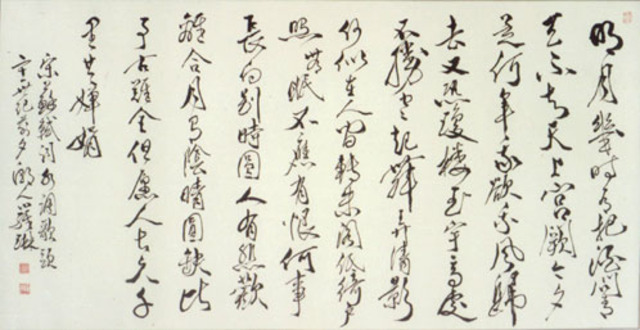 明月幾時有把酒問青
天不知天上宮闕今夕
是何年我欲乘風歸
去又恐瓊樓玉宇高處
不勝寒起舞弄清影
何似在人間轉朱閣低綺戶
照無眠不應有恨何事
長向別時圓人有悲歡
離合月有陰晴圓缺此
事古難全但願人長久千
里共嬋娟
宋蘇軾詞水調歌頭
世紀前夕